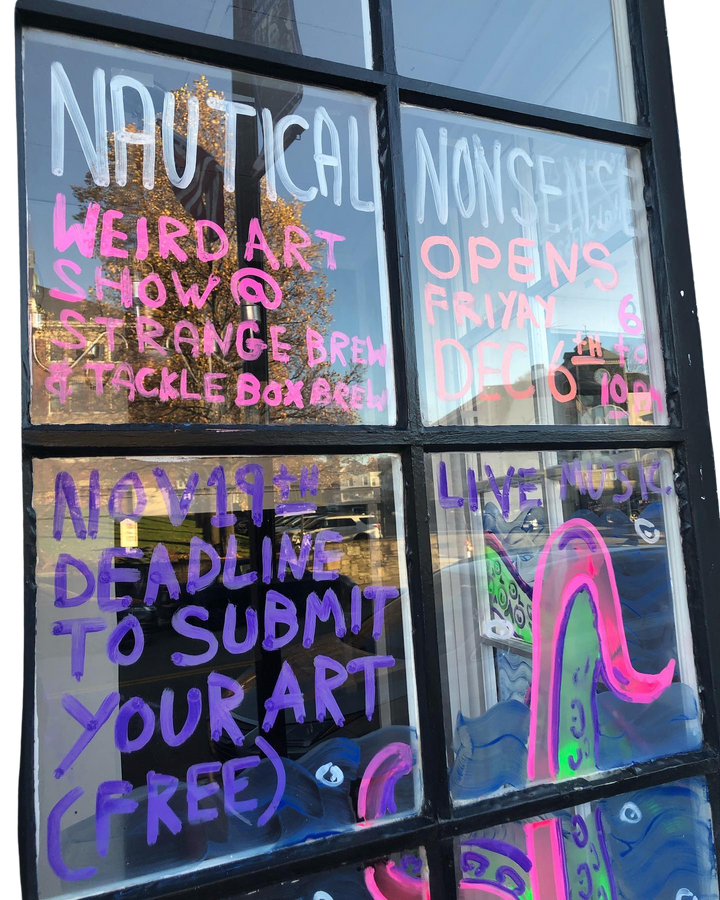 NAUTICAL
WEIRD ART
SHOW @
STRANGE BREW
& TACKLE BOX BREW
NONSENSE
OPENS
FRIYAY
DEC 6TH
6
to
10pm
NOV 19TH
DEADLINE
TO SUBMIT
YOUR ART
(FREE)
LIVE MUSIC